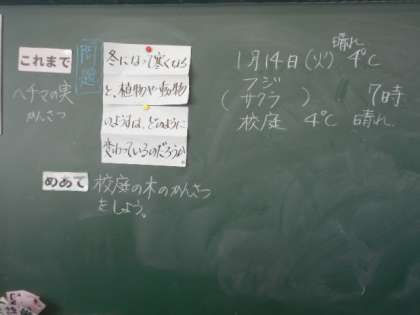 これまで
ヘチマの実
かんさつ
問題
冬になって寒くなる
と、植物や動物
のようすは、どのように
変わっているのだろうか。
めあて
校庭の木のかんさつ
をしよう。
晴れ
1月14日(火) 4℃
フジ
(サクラ) 7時
校庭 4℃ 晴れ